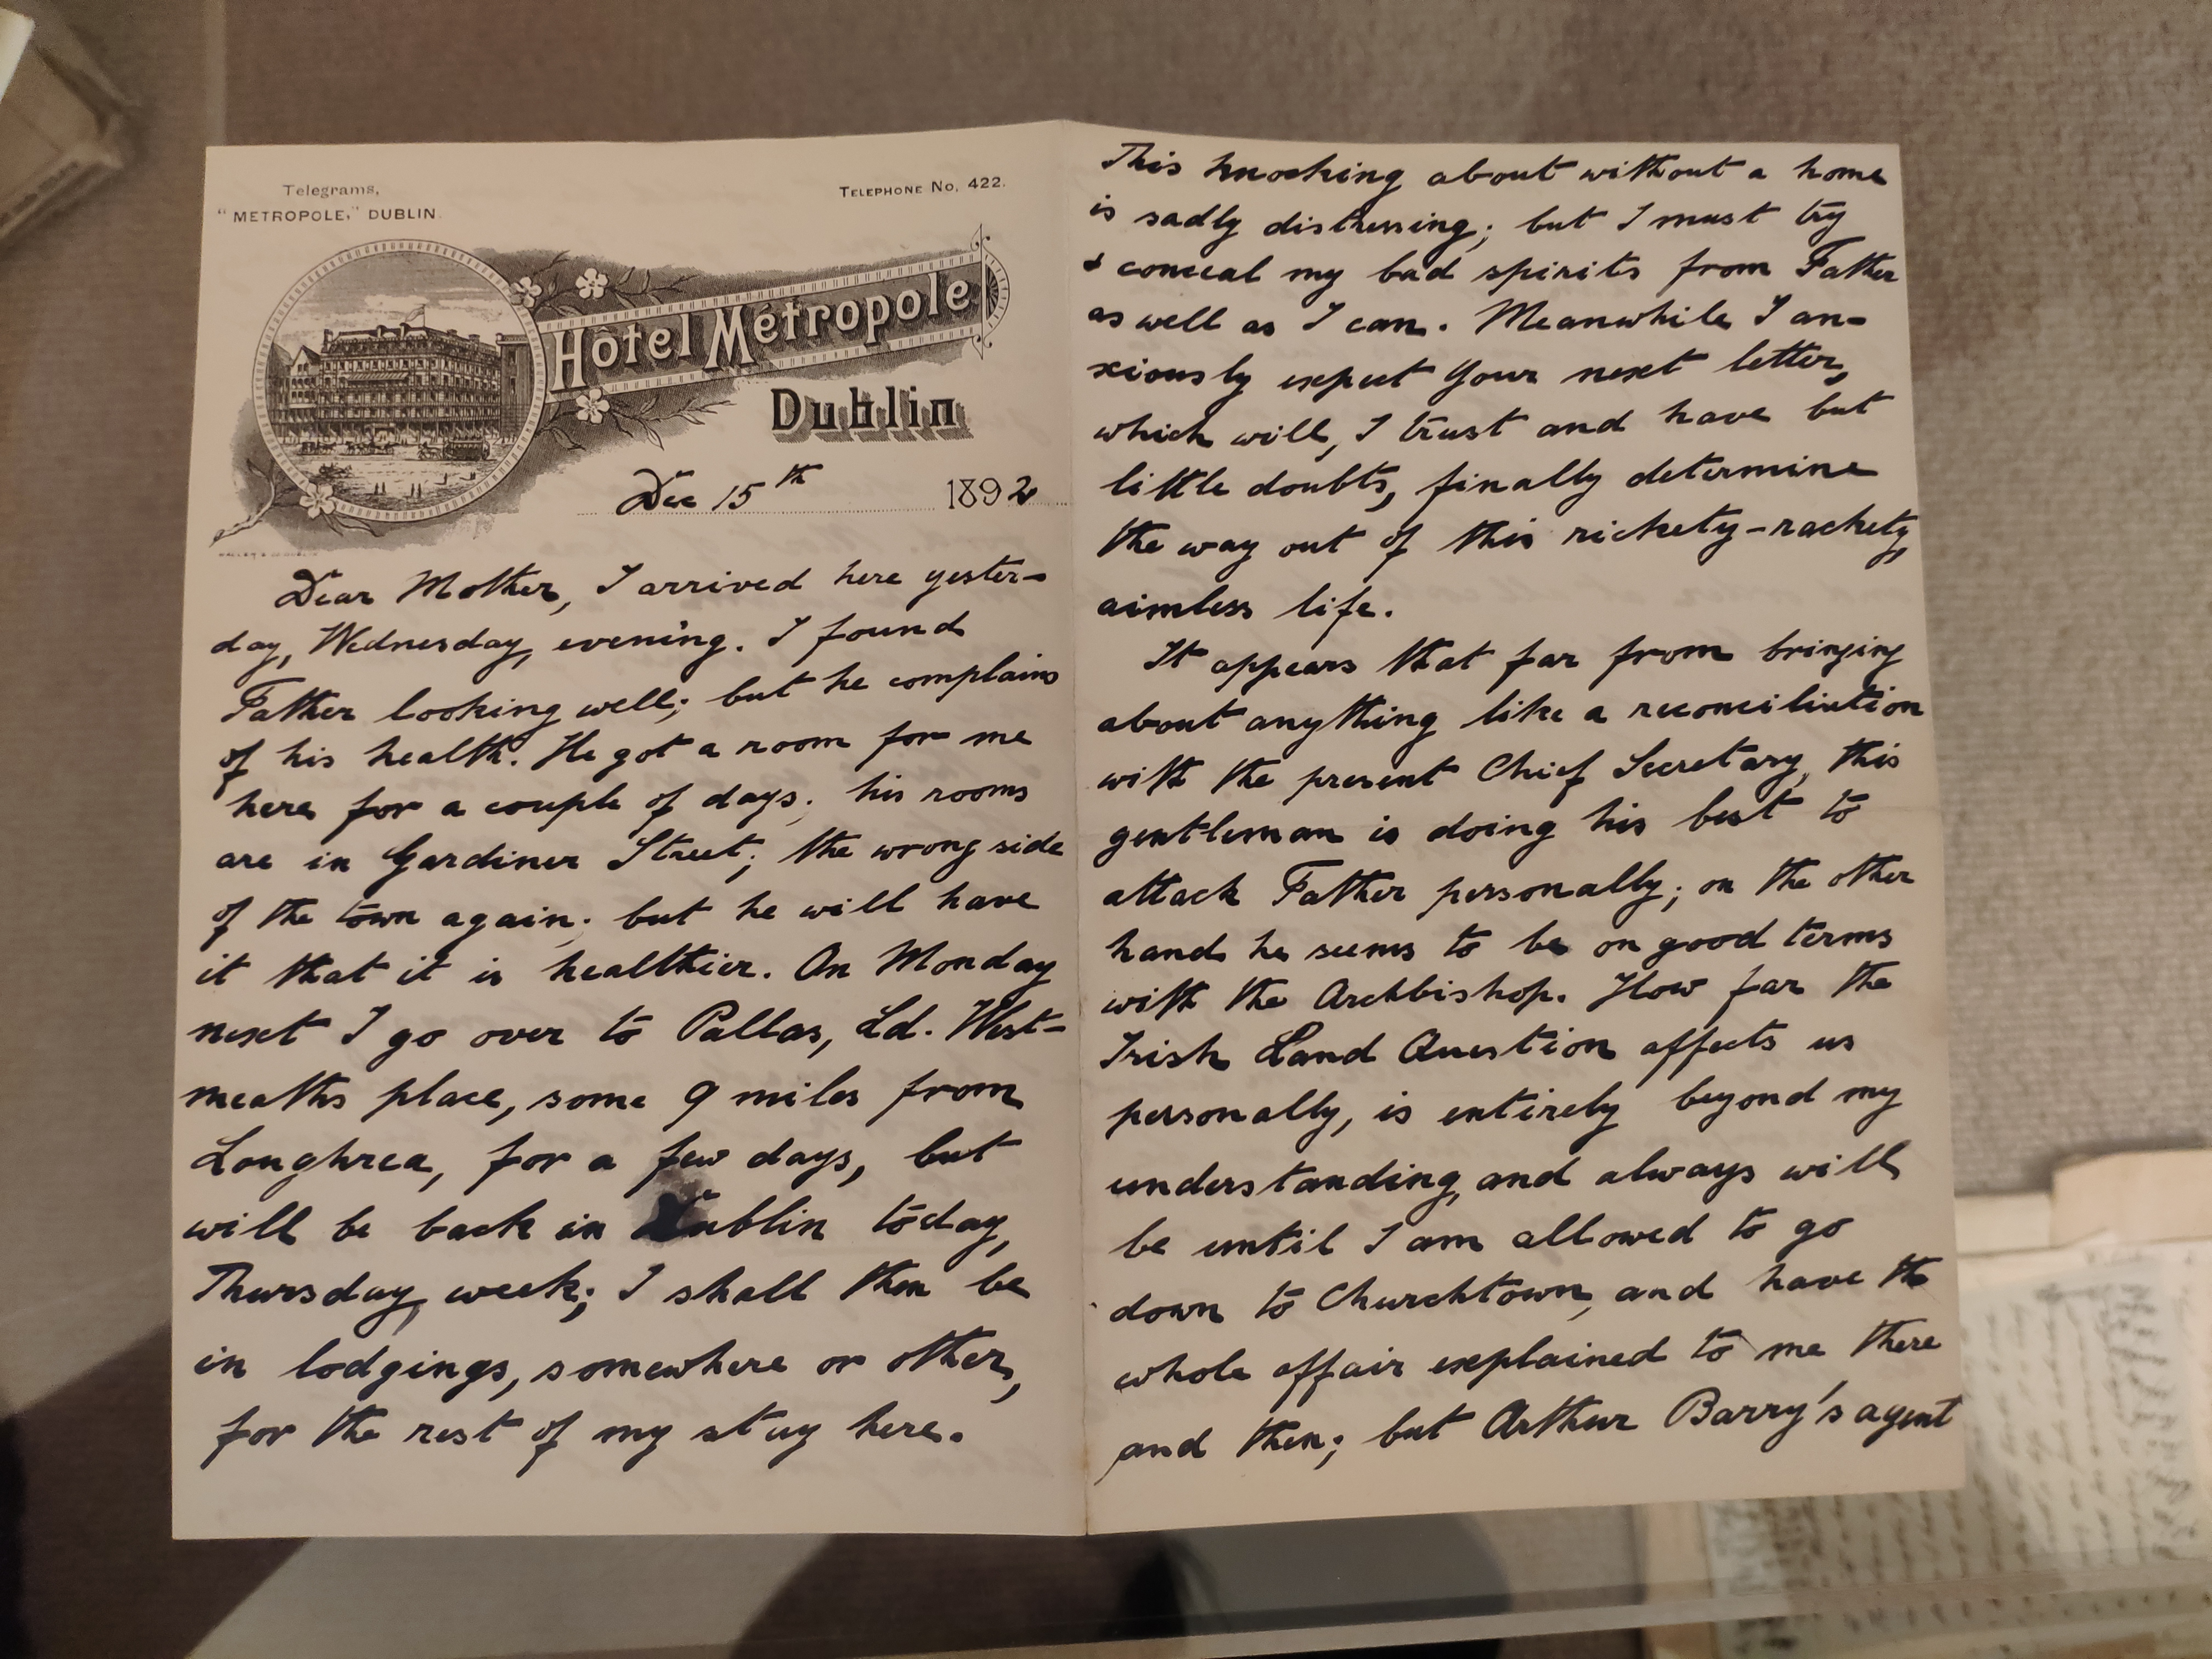 Telegrams,
"METROPOLE," DUBLIN.
TELEPHONE No. 422.
Hôtel Métropole
Dublin
Dec 15th 1892
Dear Mother, I arrived here yester-
day, Wednesday, evening. I found
Father looking well; but he complains
of his health. He got a room for me
here for a couple of days; his rooms
are in Gardiner Street; the wrong side
of the town again; but he will have
it that it is healthier. On Monday
next I go over to Pallas, Ld. West-
meaths place, some 9 miles from
Loughrea, for a few days, but
will be back in Dublin today,
Thursday, week; I shall then be
in lodgings, somewhere or other,
for the rest of my stay here.
This knocking about without a home
is sadly distressing; but I must try
& conceal my bad spirits from Father
as well as I can. Meanwhile I an-
xiously expect your next letter,
which will, I trust and have but
little doubts, finally determine
the way out of this rickety-rackety,
aimless life.
It appears that far from bringing
about anything like a reconciliation
with the present Chief Secretary, this
gentleman is doing his best to
attack Father personally; on the other
hand he seems to be on good terms
with the Archbishop. How far the
Irish Land Question affects us
personally, is entirely beyond my
understanding, and always will
be until I am allowed to go
down to Churchtown, and have the
whole affair explained to me there
and then; but Arthur Barry's agent